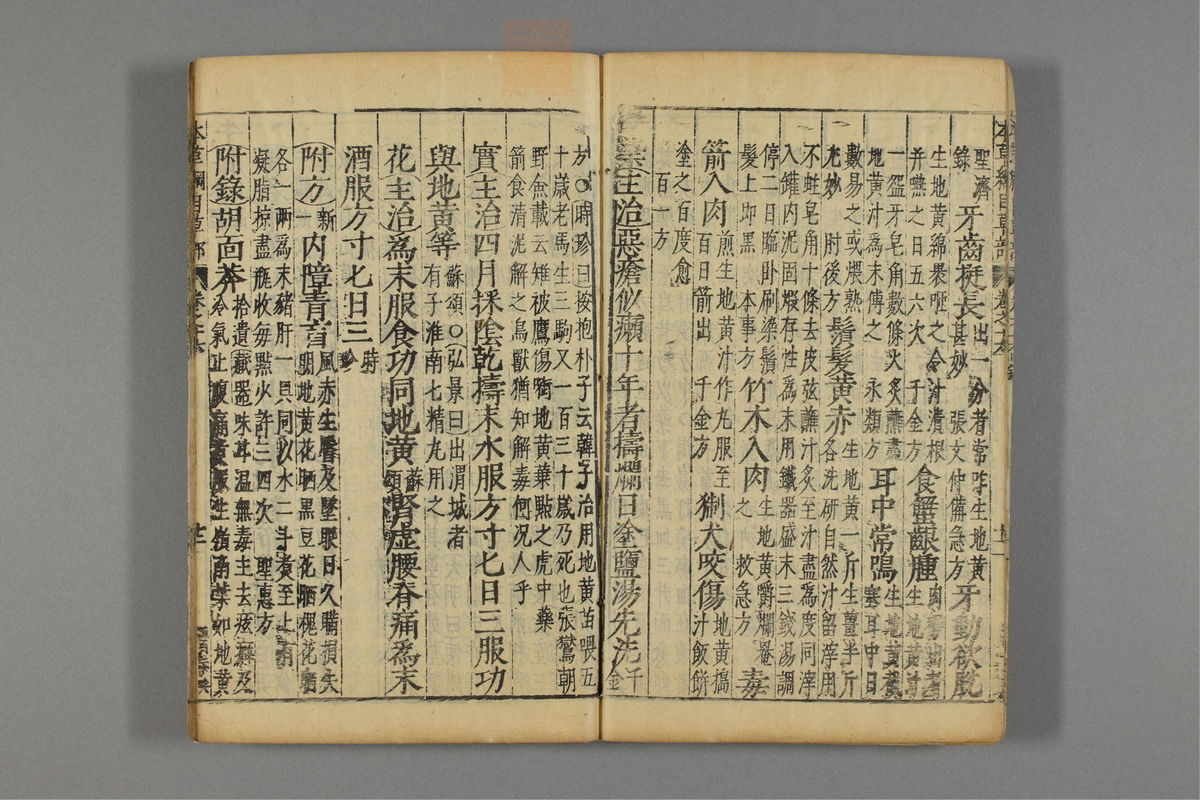 聖濟
錄 牙齒挺長 出一分者常咋生地黃
甚妙 張文仲備急方 牙動欲脫
生地黃綿裹咂之令汁漬根
并嚥之日五六次 千金方 食蟹齦腫
一盌牙皂角數條火炙蘸盡
地黃汁為末傅之 永類方 耳中常鳴 生地黃
塞耳中日
數易之或煨熟
尤妙 肘後方 鬚髮黃赤 生地黃一斤生薑半斤
各洗研自然汁留滓用
不蛀皂角十條去皮弦蘸汁炙至汁盡為度同滓
入罐內泥固煅存性為末用鐵器盛末三錢湯調
停二日臨臥刷染鬚
髮上即黑 本事方 竹木入肉 生地黃嚼爛罨
之 救急方 毒
箭入肉 煎生地黃汁作丸服至
百日箭出 千金方 猘犬咬傷 地黃搗
汁飯餅
塗之百度愈
百一方
葉主治惡瘡似癩十年者擣爛日塗鹽湯先洗 千
金
方○時珍曰按抱朴子云韓子治用地黃苗喂五
十歲老馬生三駒又一百三十歲乃死也張鷟朝
野僉載云雉被鷹傷銜地黃葉點之虎中藥
箭食清泥解之鳥獸猶知解毒何況人乎
實主治四月採陰乾擣末水服方寸匕日三服功
與地黃等 蘇頌○弘景曰出渭城者
有子淮南七精丸用之
花主治為末服食功同地黃 蘇頌 腎虛腰脊痛為末
酒服方寸匕日三 時珍
附方 新一 內障青盲 風赤生翳及墜眼日久瞳損失
明地黃花晒黑豆花晒槐花晒
各一兩為末豬肝一具同以水二斗煮至上有
凝脂掠盡瓶收每點少許三四次 聖惠方
附錄胡面莽 拾遺藏器曰味甘溫無毒主去痃癖及
冷氣止腹痛煮服生嶺南葉如地黃